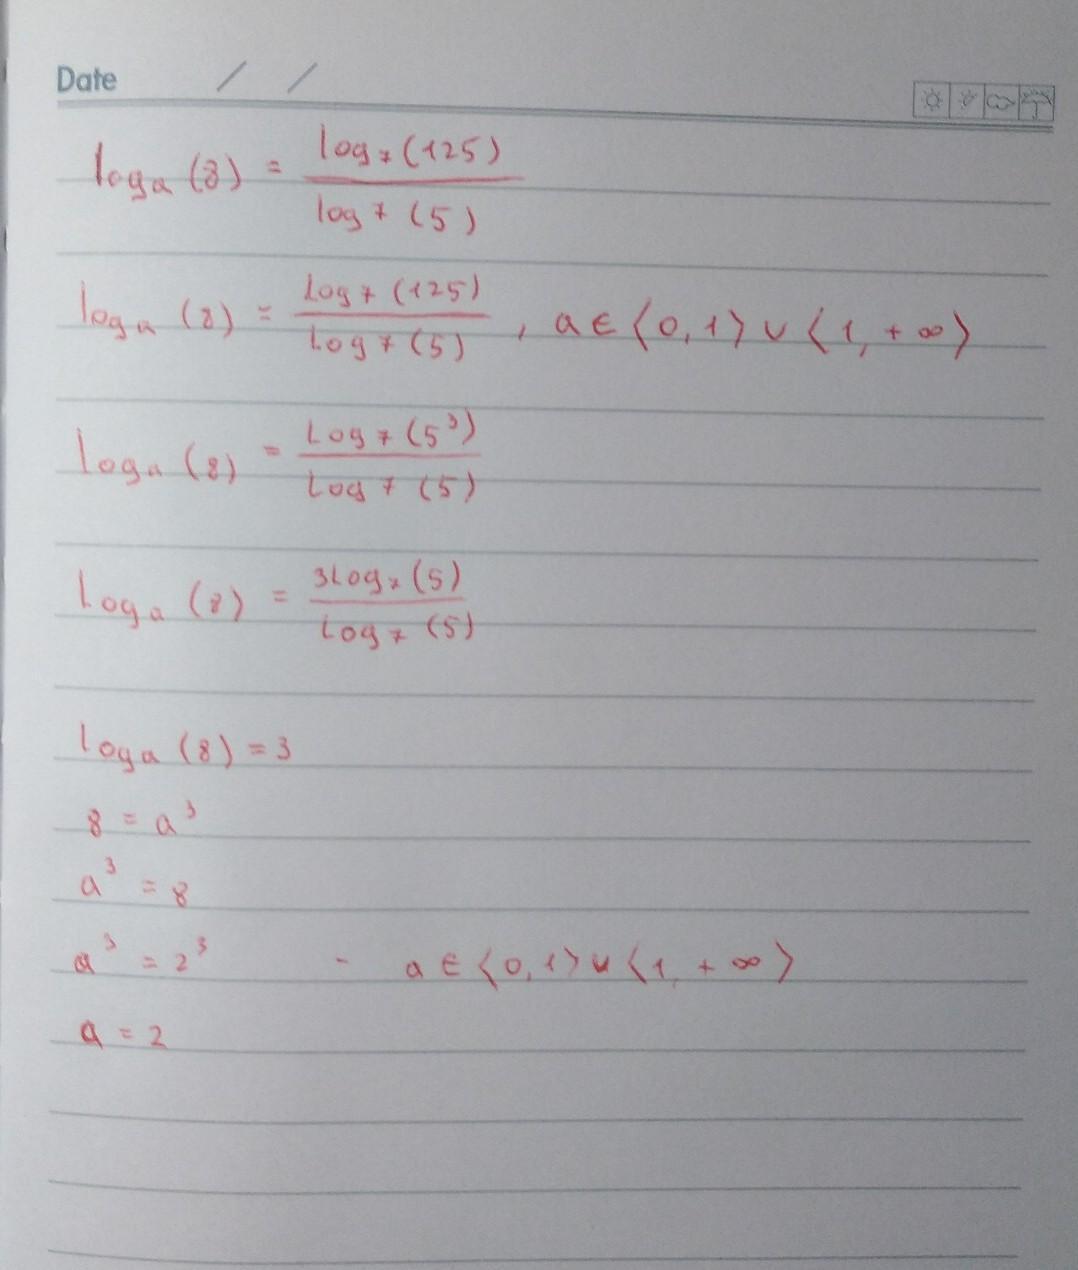 Date / /
logₐ(8) = log₇(125) / log₇(5)
logₐ(8) = log₇(125) / log₇(5) , a ∈ ⟨0,1⟩ ∪ ⟨1, +∞⟩
logₐ(8) = log₇(5³) / log₇(5)
logₐ(8) = 3log₇(5) / log₇(5)
logₐ(8) = 3
8 = a³
a³ = 8
a³ = 2³ - a ∈ ⟨0,1⟩ ∪ ⟨1, +∞⟩
a = 2